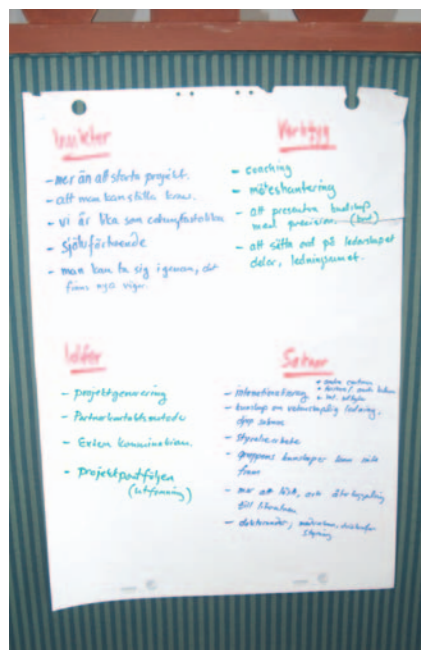 Insikter
- mer än att starta projekt.
- att man kan ställa krav.
- vi är lika som
- Självförtroende
- man kan ta sig igenom, det
finns nya vägar.
Verktyg
- coaching
- möteshantering
- att presentera budskap
med precision. (kort)
- att sätta ord på ledarskapet
delar, ledningsrummet.
Idéer
- projektgenerering
-
- Extern kommunikation.
- Projektportföljen
(utformning)
Saknar
- internationalisering
- kunskap om vetenskaplig ledning,
djup saknas
- Styrelsearbete
- gruppens kunskaper kom inte
fram
- mer att läsa, och återkoppling
till litteraturen
- doktorander,
styrning